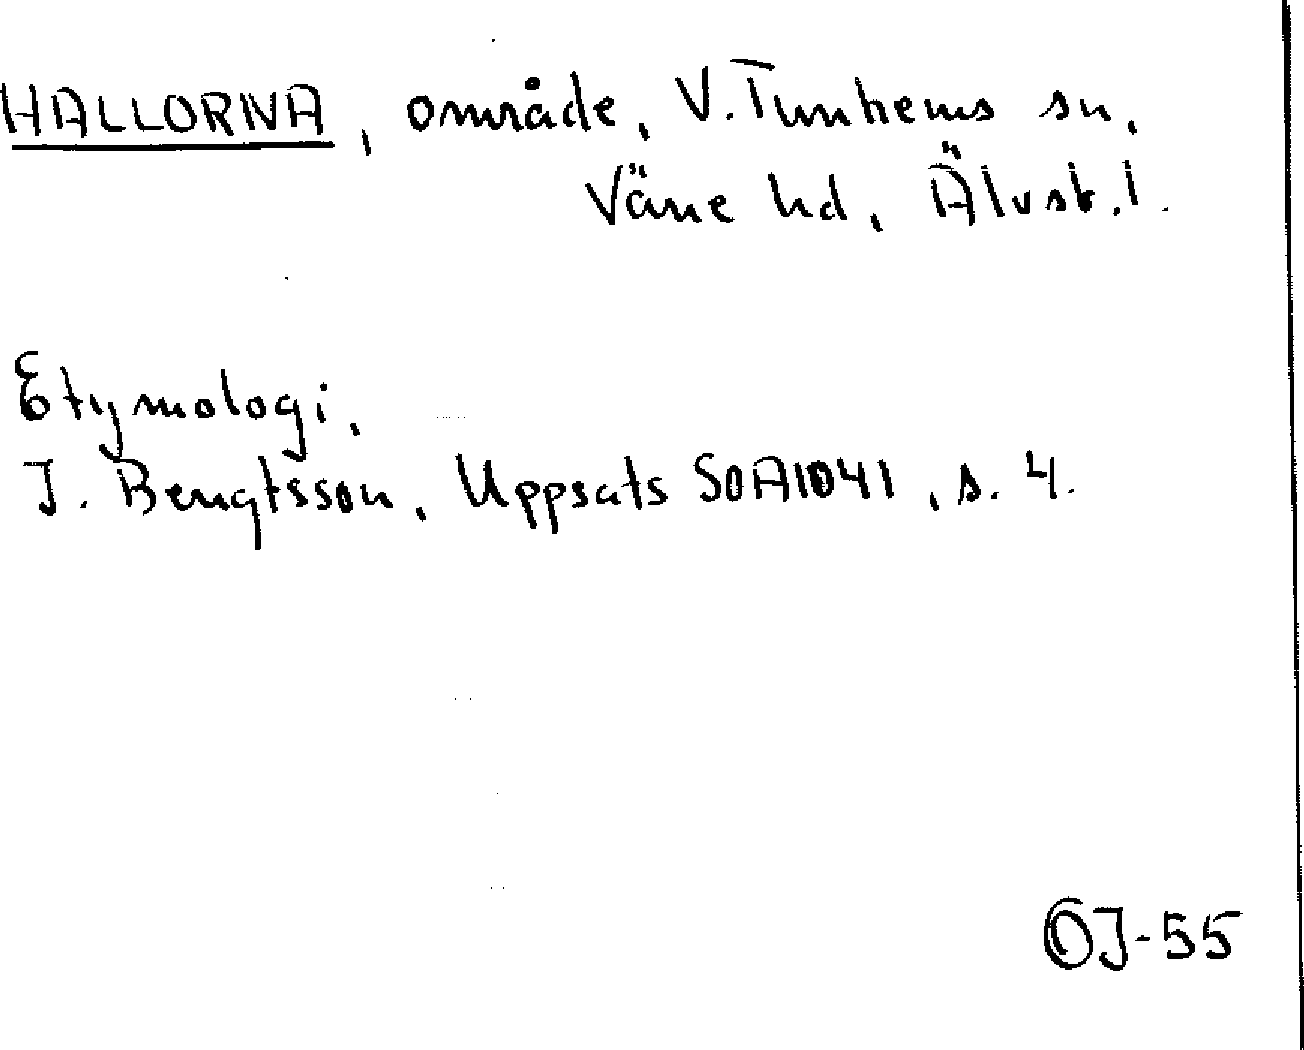 HALLORNA, område, V. Tunhems sn,
Väne hd, Älvsb. l.
Etymologi.
J. Bengtsson, Uppsats SOA1041, s. 4.
OJ-55